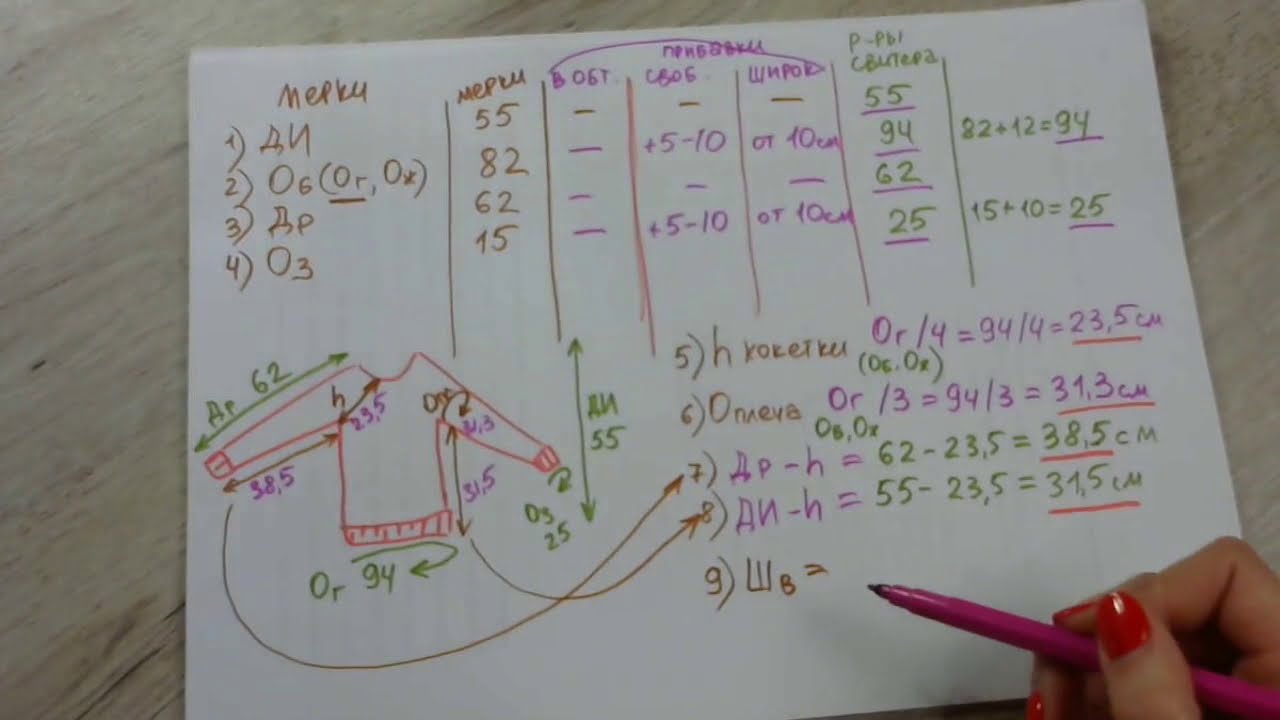 Мерки мерки ПРИБАВКИ Р-РЫ СВИТЕРА
В ОБТ. СВОБ. ШИРОК
1) ДИ 55 – – – 55
2) Об (Ог, Ох) 82 – +5-10 от 10см 94 82+12=94
3) Др 62 – – – 62
4) Оз 15 – +5-10 от 10см 25 15+10=25
5) h кокетки Ог/4 = 94/4 = 23,5 см
(Об, Ох)
6) Оплеча Ог /3 = 94/3 = 31,3 см
Ов, Ох
7) Др - h = 62 - 23,5 = 38,5 см
8) ДИ - h = 55 - 23,5 = 31,5 см
9) Шв =
Др 62
h
23,5
31,3
38,5
31,5
ДИ
55
Оз
25
Ог 94